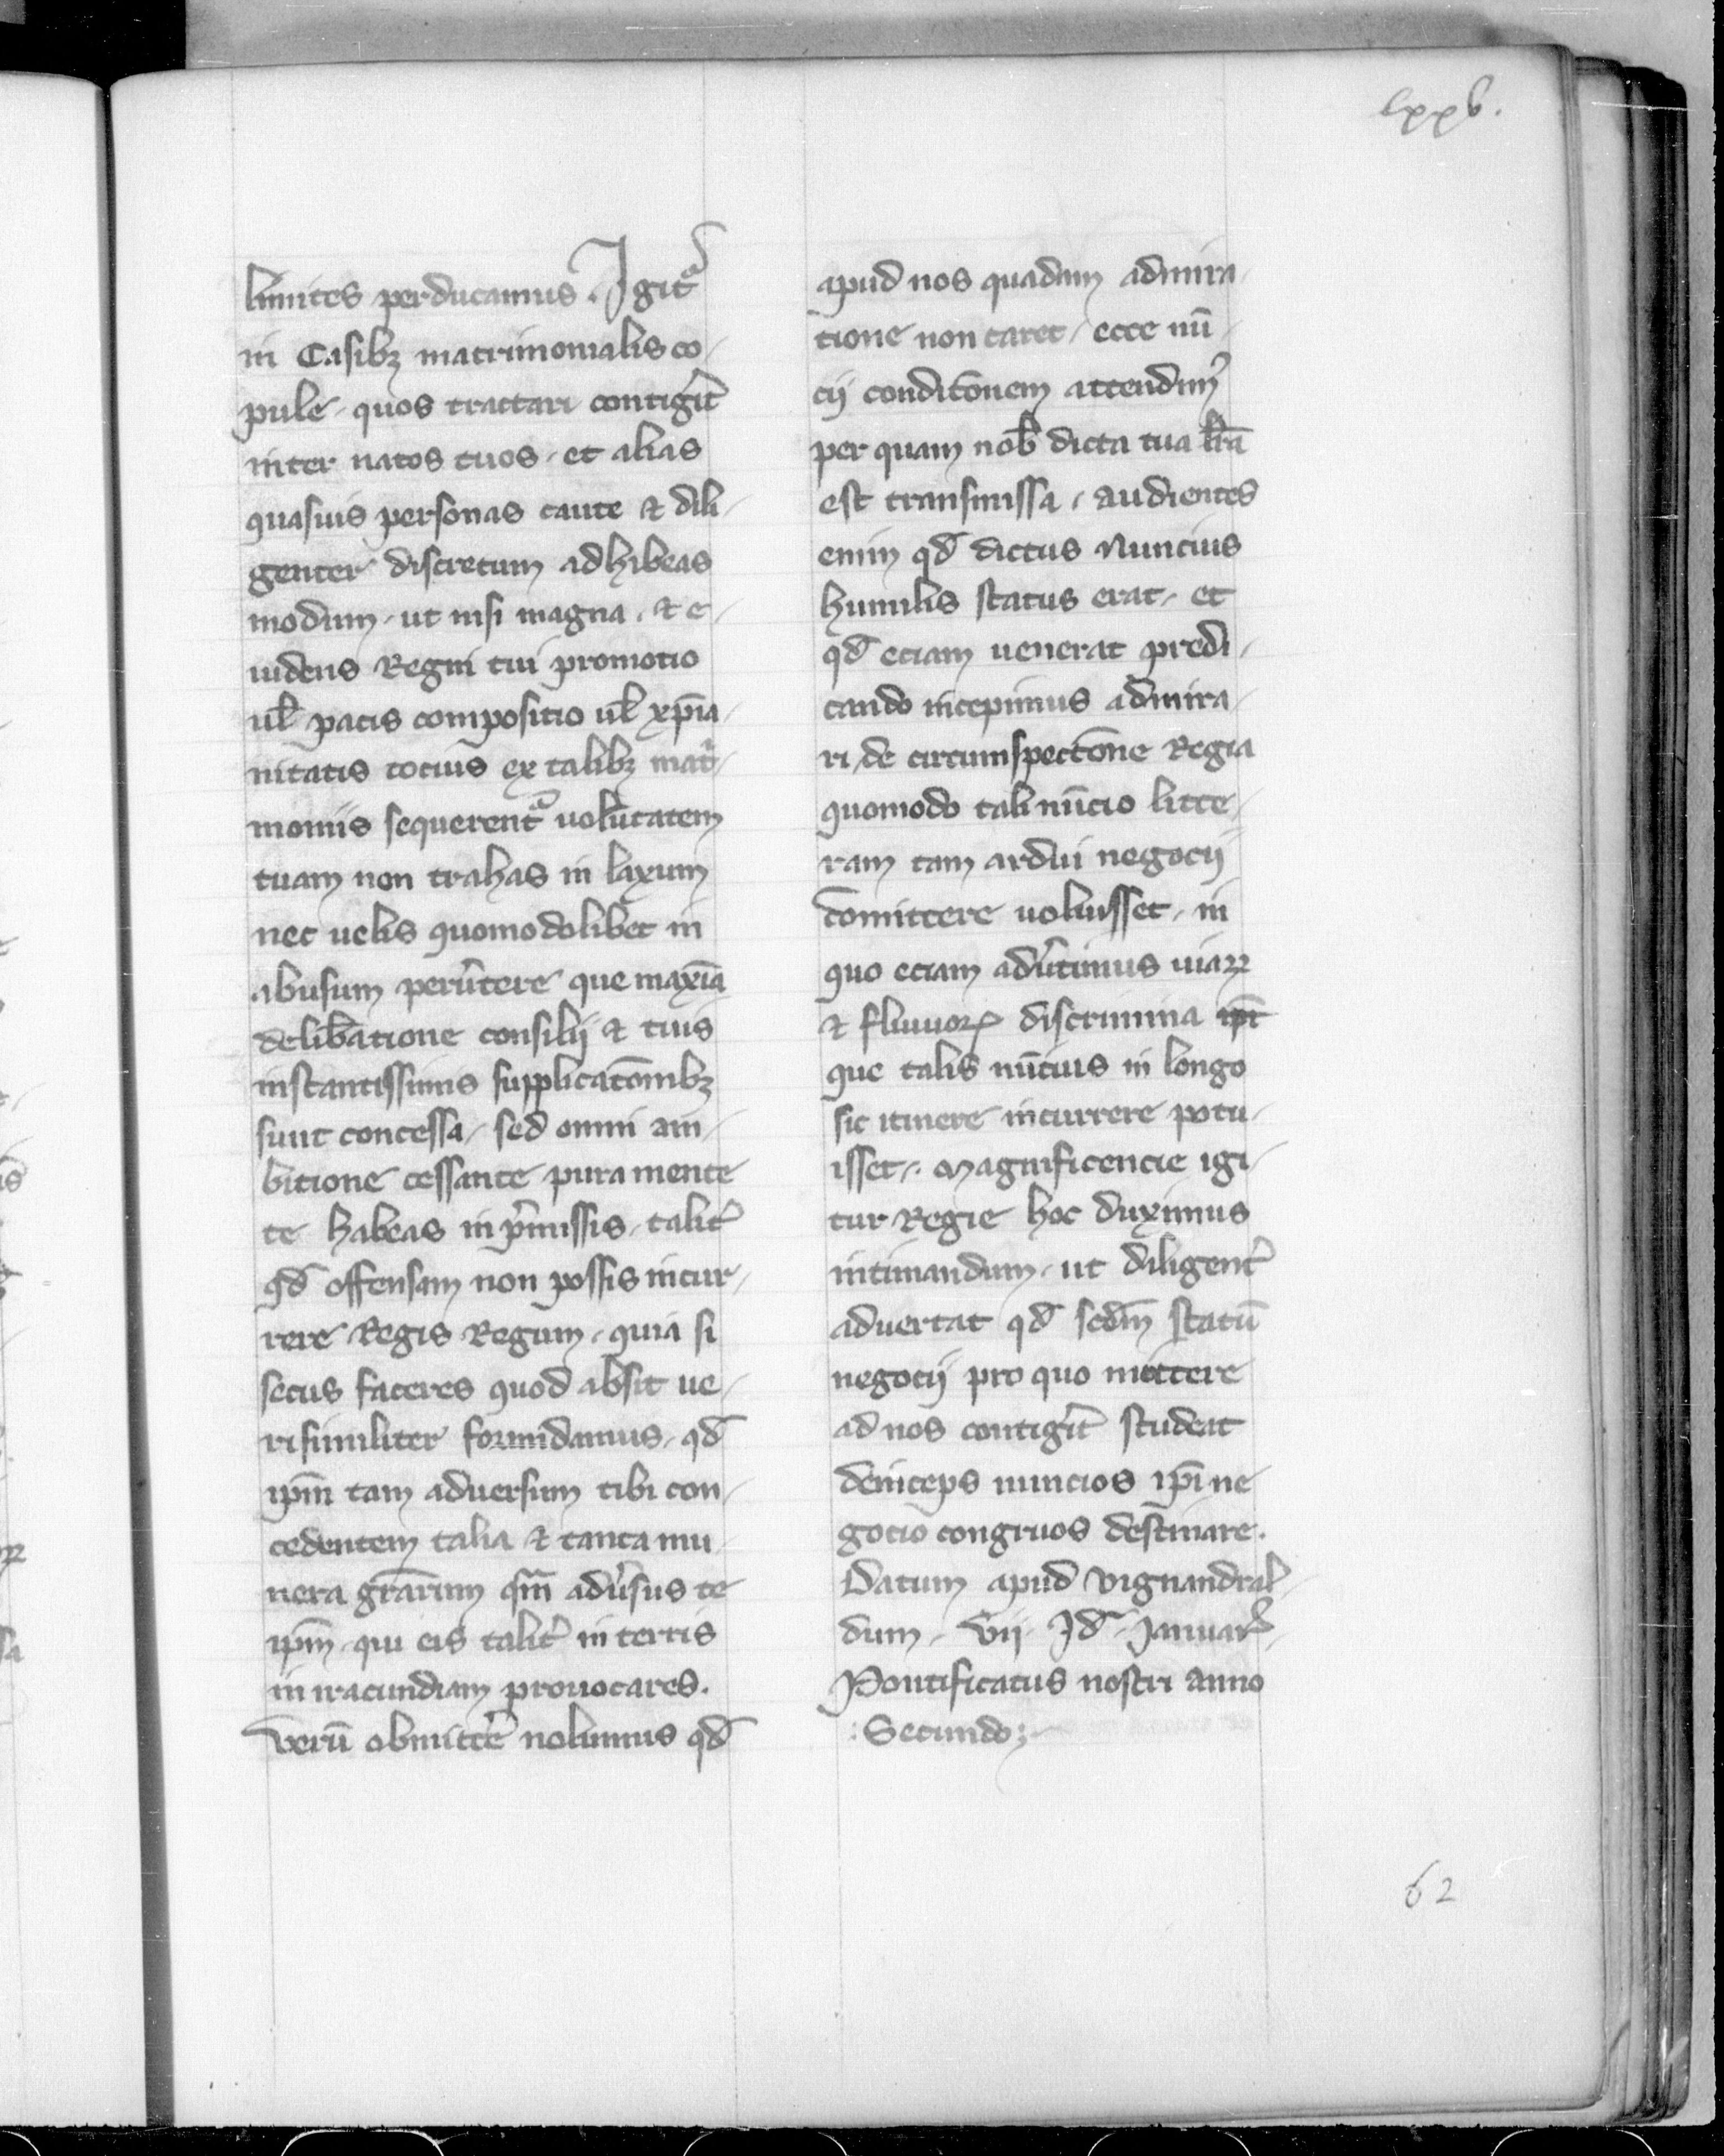 lxxv.
limites perducamus. Igit᷑
in Casibꝫ matrimonialis co-
pule, quos tractari contig̓it
inter natos tuos, et alias
quasuis personas caute ⁊ dili-
genter discretum adhibeas
modum, ut nisi magna, ⁊ e-
uidens Regni tui promotio
ul̄ pacis compositio ul̄ xp̄ia-
nitatis tocius ex talibꝫ mat̓-
moniis sequerent᷑ volūtatem
tuam non trahas in laxum
nec uelis quomodolibet in
abusum peruˀtere que maxīa
delib̄atione consilij ⁊ tuis
instantissimis supplicatōnibꝫ
sunt concessa, sed omni am-
bitione cessante pura mente
te habeas in p̄missis, talit̓
qd̄ offensam non possis incur-
rere Regis Regum, quia si
secus faceres quod absit ue-
risimiliter formidamus, qd̄
ip̄m tam aduersum tibi con-
cedentem talia ⁊ tanta mu-
nera gr̄arum qm̄ adu̓sus te
ip̄m, qui eis talit̓ in terris
in iracundiam prouocares.
Verū obmitte̓ nolumus qd̄
apud nos quadam admira-
tione non caret, ecce nū-
cij conditōnem attendim᷒
per quam nob̄ dicta tua lr̄a
est transmissa, audientes
enim qd̄ dictus Nuncius
humilis status erat, et
qd̄ eciam uenerat predi-
cando incepimus admira-
ri, de circumspectōne Regia
quomodo tali nūcio litte-
ram tam ardui negocij
cōmittere uoluisset, in
quo eciam adu̓timus uiaꝝ
⁊ fluuioꝝ discrimina ip̄i
que talis nūcius in longo
sic itinere incurrere potu-
isset. Magnificencie igi-
tur Regie hoc duximus
intimandum, ut diligent̓
aduertat qd̄ scd̄m statū
negocij pro quo mittere
ad nos contig̓it studeat
deinceps nuncios ip̄i ne-
gocio congruos destinare.
Datum apud Vignandral-
dum, Vij. Id̄. Januar̄.
Pontificatus nostri anno
: Secundo;
62